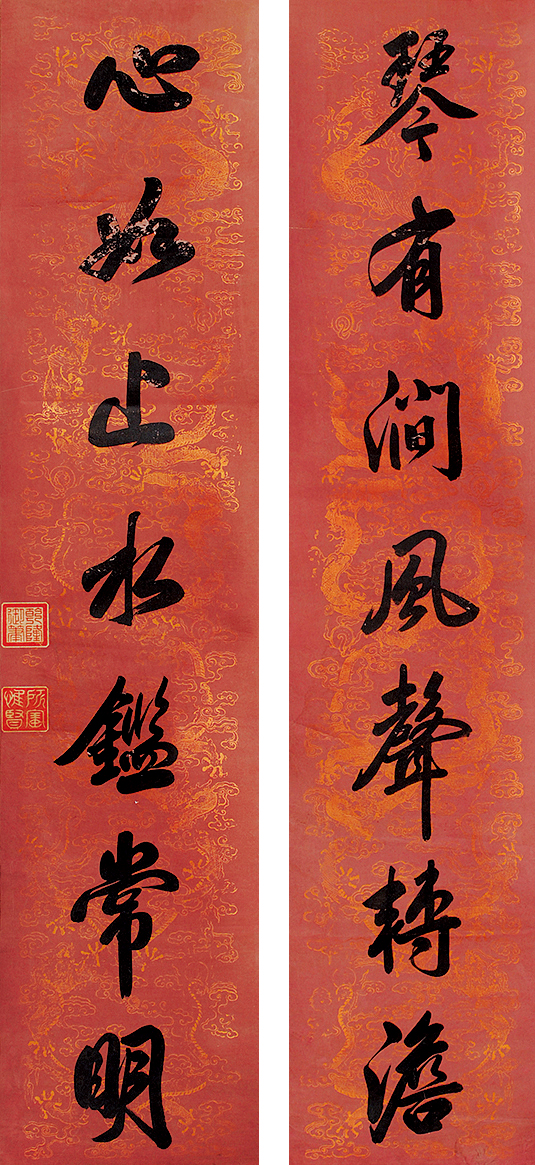 琴有澗風聲轉澹
心如止水鑑常明
乾隆御筆
所寶惟賢